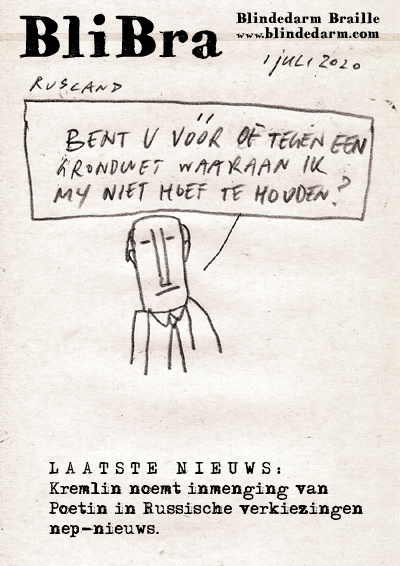 BliBra
Blindedarm Braille
www.blindedarm.com
1 JULI 2020
RUSLAND
BENT U VÓÓR OF TEGEN EEN
GRONDWET WAARAAN IK
MY NIET HOEF TE HOUDEN?
LAATSTE NIEUWS:
Kremlin noemt inmenging van
Poetin in Russische verkiezingen
nep-nieuws.